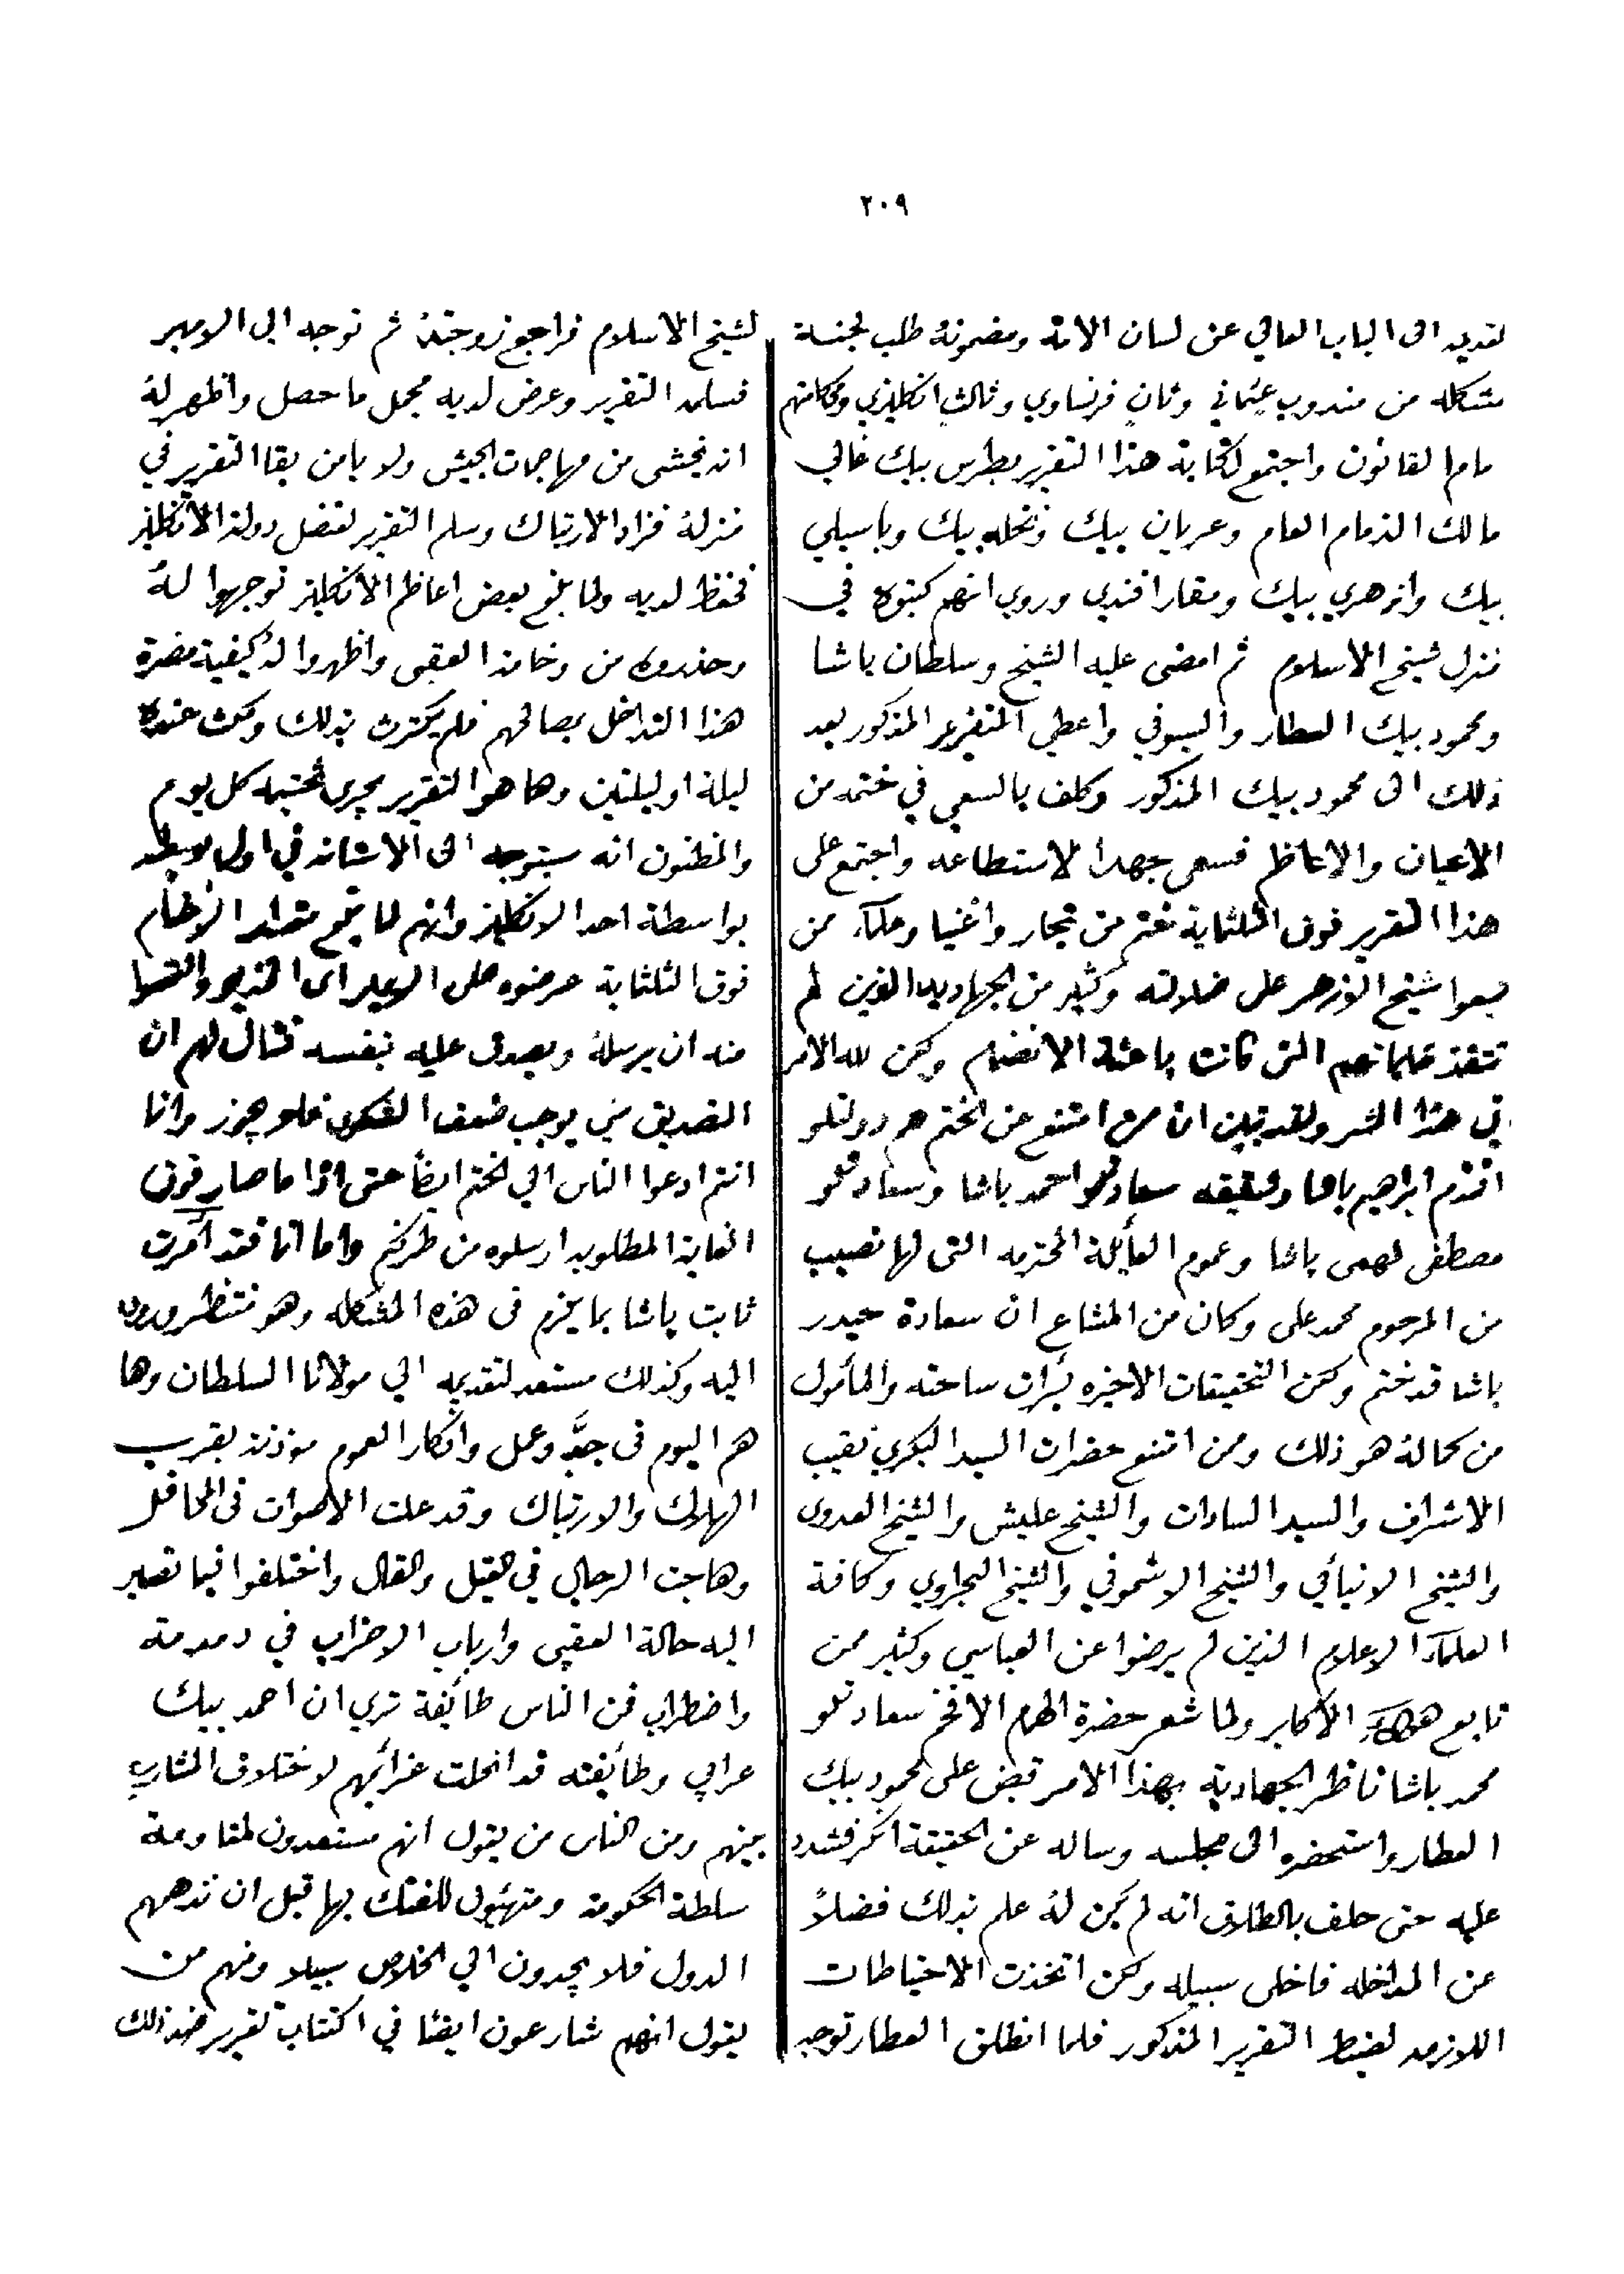 ٢٠٩
لتقديمه الى الباب العالي عن لسان الامة ومضمونهُ طلب لجنة
متشكله من مندوب عثماني وثانٍ فرنساوي وثالث انكليزي ومحاكمتهم
امام القانون واجتمع لكتابة هذا التقرير بطرس بيك غالي
مالك الذمام العام وعريان بيك ونخله بيك وباسيلي
بيك وازهري بيك ومقار افندي وروي انهم كتبوه في
منزل شيخ الاسلام ثم امضى عليه الشيخ وسلطان باشا
ومحمود بيك العطار والسيوفي واعطي التقرير المذكور بعد
ذلك الى محمود بيك المذكور وكلف بالسعي في ختمه من
الاعيان والاعاظم فسعى جهد الاستطاعه واجتمع على
هذا التقرير فوق الثلثماية ختم من تجار واغنيا وعلمآء ممن
تبعوا شيخ الازهر على ضلالته وكثير من الجهاديه الذين لم
تنفذ طلباتهم التي كانت باعثة الانضمام ولكن لله الامر
في هذا الشر ولقد تبين ان من امتنع عن الختم هم دولتلو
افندم ابراهيم باشا وشقيقه سعادتلو احمد باشا وسعادتلو
مصطفى فهمي باشا وعموم العائلة المحترمه التي لها نصيب
من المرحوم محمد علي وكان من المشاع ان سعادة حيدر
باشا قد ختم ولكن التحقيقات الاخيره برأت ساحته والمأمول
من كماله هو ذلك وممن امتنع حضرات السيد البكري نقيب
الاشراف والسيد السادات والشيخ عليش والشيخ العدوى
والشيخ الانبأبي والشيخ الاشموني والشيخ البحراوي وكافة
العلمآء الاعلام الذين لم يرضوا عن العباسي وكثير ممن
تابع هولآء الاكابر ولما شعر حضرة الهمام الافخم سعادتلو
محمد باشا ناظر الجهادية بهذا الامر قبض على محمود بيك
العطار واستحضره الى مجلسه وساله عن الحقيقة انكر فشدد
عليه حتى حلف بالطلاق انه لم يكن لهُ علم بذلك فضلاً
عن المداخله فاخلى سبيله ولكن اتخذت الاحتياطات
اللازمه لضبط التقرير المذكور فلما انطلق العطار توجه
لشيخ الاسلام فراجع زوجتهُ ثم توجه الى الامير
فسلمه التقرير وعرض لديه مجمل ما حصل واظهر لهُ
انه يخشى من مهاجمات الجيش ولا يامن بقا التقرير في
منزلهُ فزاد الارتباك وسلم التقرير لقنصل دولة الانكليز
فحفظ لديه ولما بلغ بعض اعاظم الانكليز توجهوا لهُ
وحذروه من وخامة العقبى واظهروا لهُ كيفية مضرة
هذا التداخل بصالحهم فلم يكترث بذلك ومكث عنده
ليلة او ليلتين وها هو التقرير يجري تختيمه كل يوم
والمظنون انه سيتوجه الى الاستانه في اول بوسطه
بواسطة احد الانكليز وانهم لما بلغ مقدار الاختام
فوق الثلثماية عرضوه على الامير اى الخديو والتمسوا
منه ان يرسلهُ ويصدق عليه بنفسه فقال لهم ان
التصديق مني يوجب ضعف الشكوى فلا يجوز وانما
انتم ادعوا الناس الي الختم ايضاً حتى اذا ما صار فوق
الغاية المطلوبه ارسلوه من طرفكم واما انا فقد امرت
ثابت باشا بما يلزم فى هذه المشكله وهو منتظر وروده
اليه وكذلك مستعد لتقديمه الي مولانا السلطان وها
هم اليوم فى جدٍّ وعمل وافكار العموم موذنة بقرب
الهلاك والارتباك وقد علت الاصوات فى المحافل
وهاجت الرجال في القيل والقال واختلفوا فيما تصير
اليه حالة العقبى وارباب الاحزاب في دمدمة
واضطراب فمن الناس طائفة تري ان احمد بيك
عرابي وطائفته قد انحلت عزائمهم لاختلاف المشارب
بينهم ومن الناس من يقول انهم مستعدون لمقاومة
سلطة الحكومة ومتهيئون للفتك بها قبل ان تدهمهم
الدول فلا يجدون الي الخلاص سبيلا ومنهم من
يقول انهم شارعون ايضًا في اكتتاب تقرير ضد ذلك